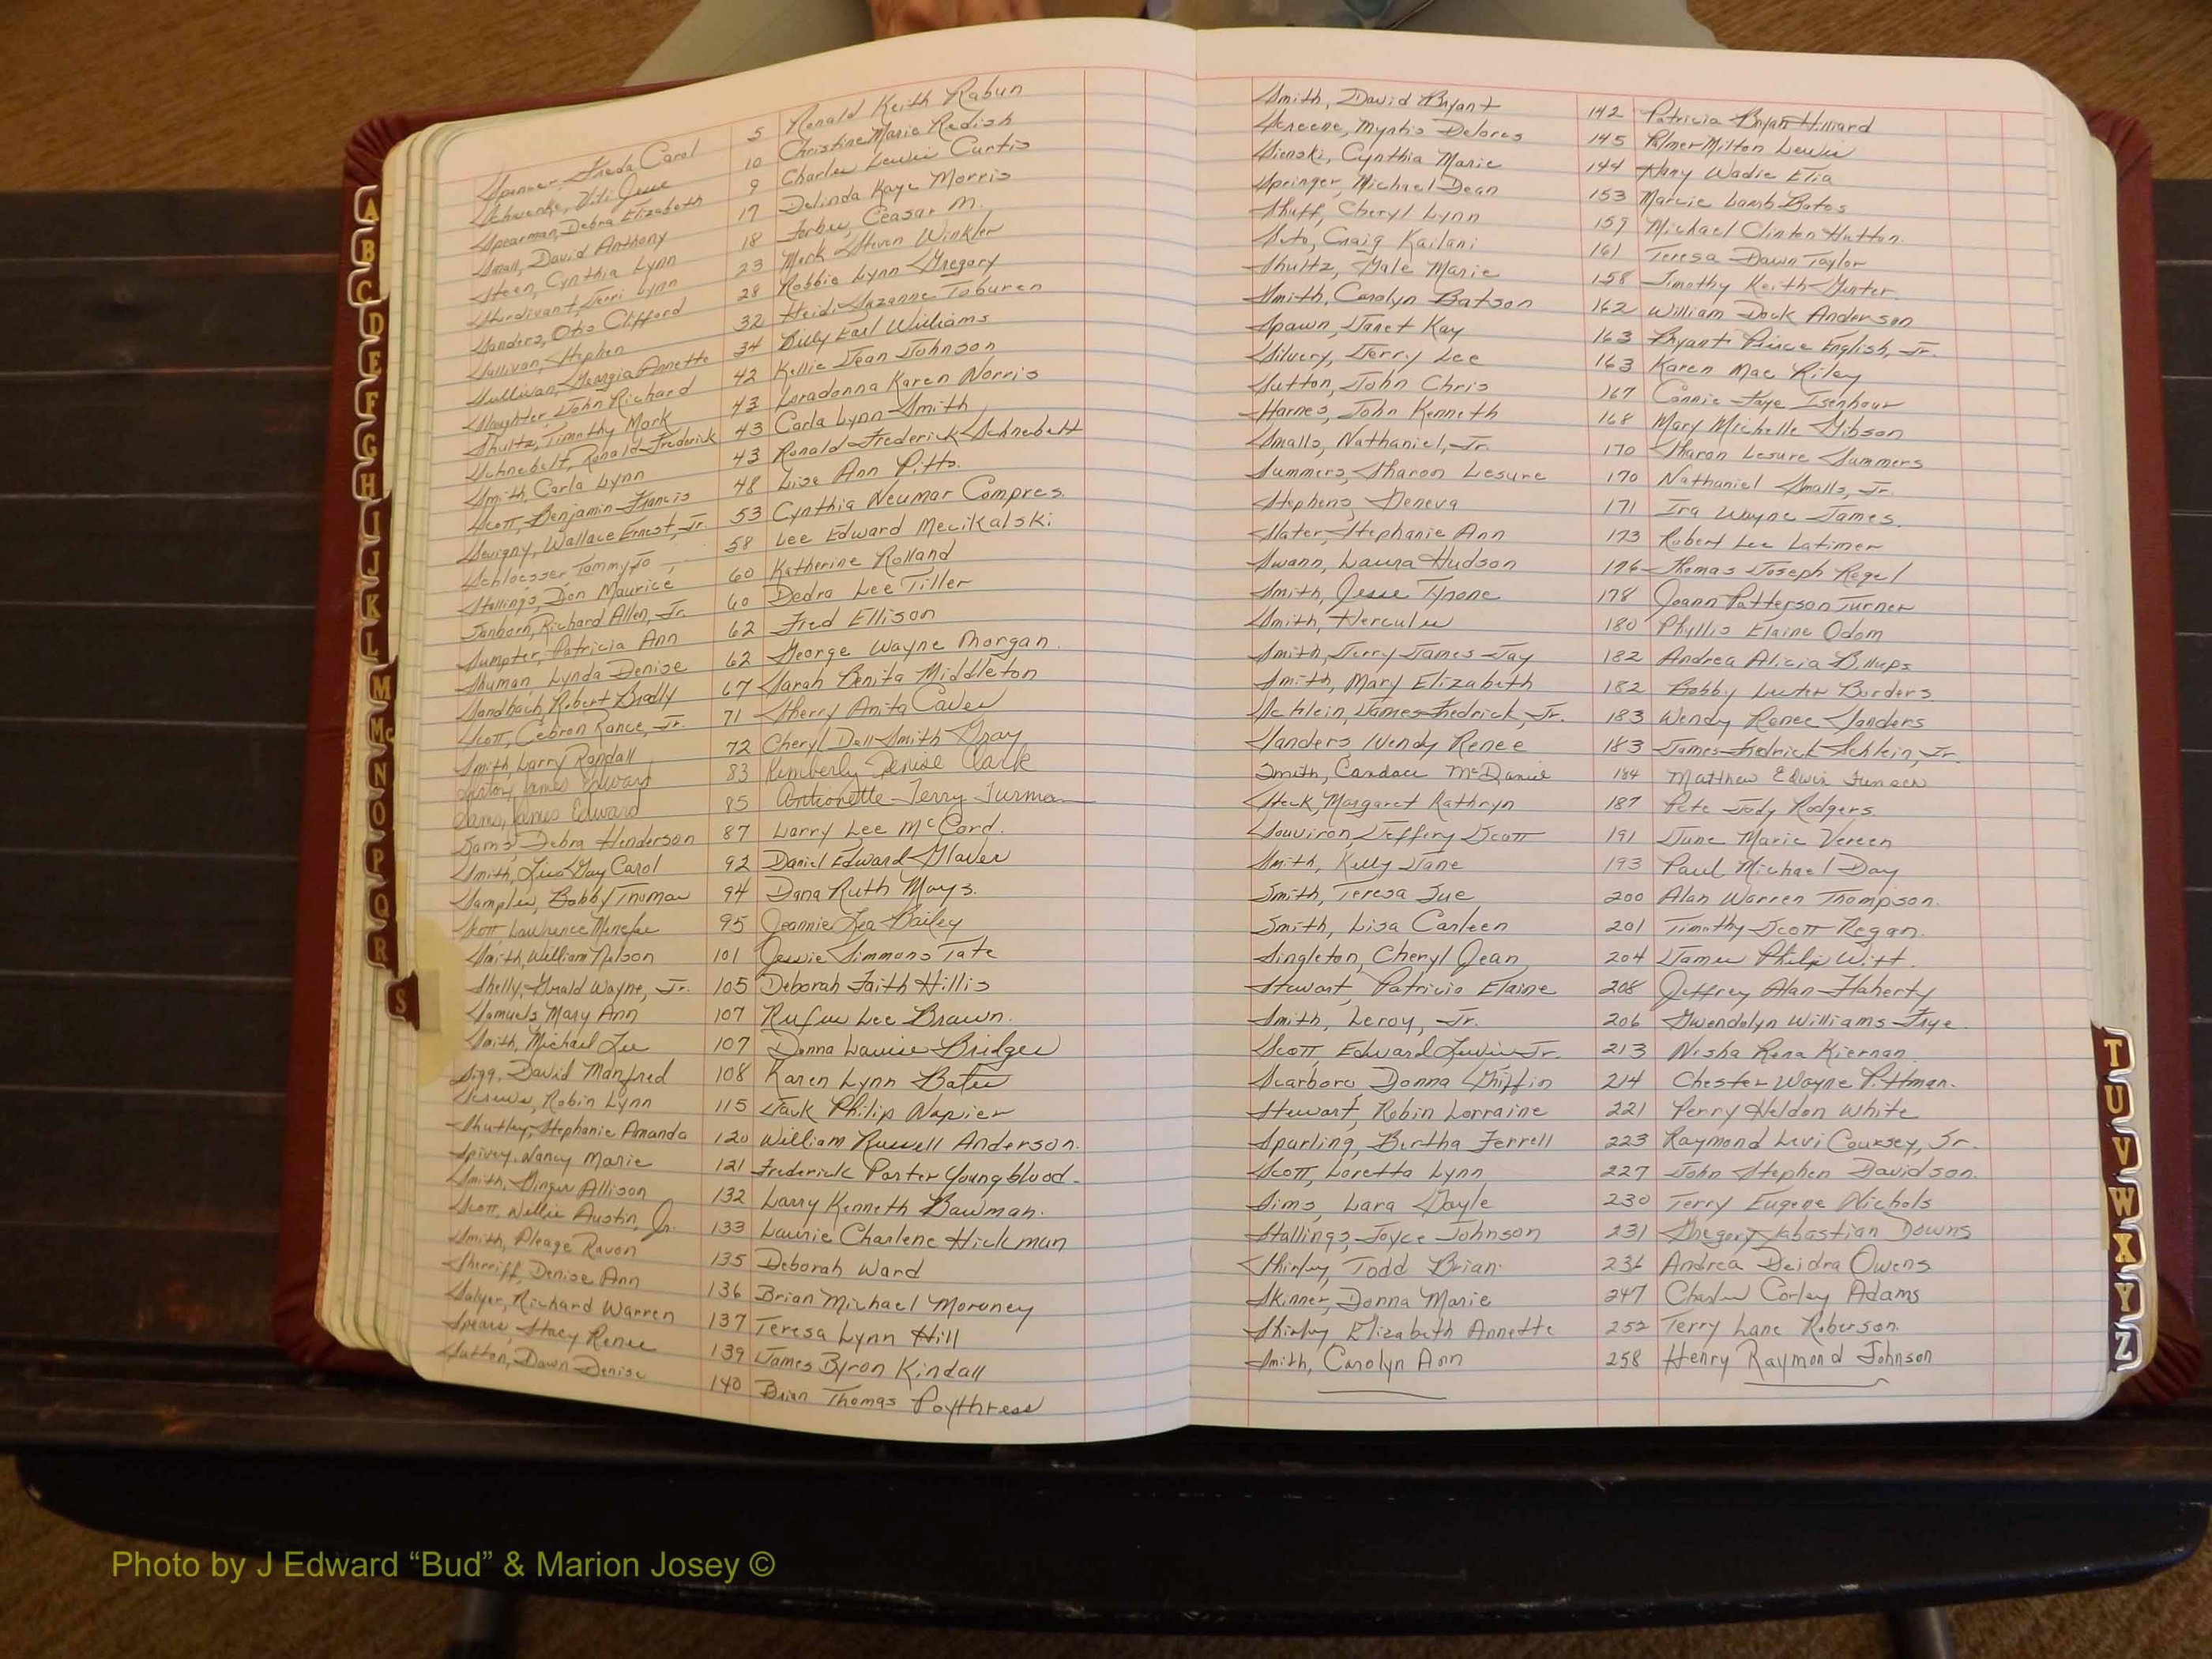 Spencer, Freda Carol 5 Ronald Keith Rabun
Schwenke, Viti Jesse 10 Christine Marie Redish
Spearman, Debra Elizabeth 9 Charles Lewis Curtis
Small, David Anthony 17 Delinda Kaye Morris
Steen, Cynthia Lynn 18 Forbes, Ceasar M.
Sturdivant, Terri Lynn 23 Mark Steven Winkler
Sanders, Otis Clifford 28 Robbie Lynn Gregory
Sullivan, Stephen 32 Heidi Suzanne Toburen
Sullivan, Georgia Annette 34 Billy Earl Williams
Slaughter, John Richard 42 Kellie Jean Johnson
Shultz, Timothy Mark 43 Loradonna Karen Norris
Schnebelt, Ronald Frederick 43 Carla Lynn Smith
Smith, Carla Lynn 43 Ronald Frederick Schnebelt
Scott, Benjamin Francis 48 Lisa Ann Pitts.
Sevigny, Wallace Ernest, Jr. 53 Cynthia Neumar Compres.
Schloesser, Tammy Jo 58 Lee Edward Mecikalski
Stallings, Don Maurice 60 Katherine Rolland
Sanborn, Richard Allen, Jr. 60 Dedra Lee Tiller
Sumpter, Patricia Ann 62 Fred Ellison
Shuman, Lynda Denise 62 George Wayne Morgan.
Sandbach, Robert Bradly 67 Sarah Benita Middleton
Scott, Cebron Rance, Jr. 71 Sherry Anita Caves
Smith, Larry Randall 72 Cheryl Dell Smith Gray
James Edward 83 Kimberly Denise Clark
Sams, James Edward 85 Antionette Terry Turman
Sams, Debra Henderson 87 Larry Lee McCord.
Smith, Lisa Gay Carol 92 Daniel Edward Glaves
Samples, Bobby Thomas 94 Dana Ruth Mays.
Scott, Lawrence Menefee 95 Jeannie Lea Bailey
Smith, William Nelson 101 Jessie Simmons Tate
Shelly, Gerald Wayne, Jr. 105 Deborah Faith Hillis
Samuels Mary Ann 107 Rufus Lee Brown.
Smith, Michael Lee 107 Donna Louise Bridges
Sigg, David Manfred 108 Karen Lynn Bates
Screws, Robin Lynn 115 Jack Philip Napier
Shutley, Stephanie Amanda 120 William Russell Anderson.
Spivey, Nancy Marie 121 Frederick Porter Youngblood.
Smith, Ginger Allison 132 Larry Kenneth Bowman.
Scott, Willie Austin, Jr. 133 Laurie Charlene Hickman
Smith, Pleage Ravon 135 Deborah Ward
Sherriff, Denise Ann 136 Brian Michael Moroney
Salyer, Richard Warren 137 Teresa Lynn Hill
Spears, Stacy Renee 139 James Byron Kindall
Sutton, Dawn Denise 140 Brian Thomas Poythress
Smith, David Bryant 142 Patricia Bryan Hilliard
Screene, Myrtis Delores 145 Palmer Milton Lewis
Sienski, Cynthia Marie 144 Hany Wadie Elia
Springer, Michael Dean 153 Marcie Lamb Bates
Shuff, Cheryl Lynn 159 Michael Clinton Hutton.
Soto, Craig Kailani 161 Teresa Dawn Taylor
Shultz, Gale Marie 158 Timothy Keith Ginter.
Smith, Carolyn Batson 162 William Dock Anderson
Spawn, Janet Kay 163 Bryant Peirce English, Jr.
Silvery, Jerry Lee 163 Karen Mae Riley
Sutton, John Chris 167 Connie Faye Isenhour
Harnes, John Kenneth 168 Mary Michelle Gibson
Smalls, Nathaniel, Jr. 170 Sharon Lesure Summers
Summers, Sharon Lesure 170 Nathaniel Smalls, Jr.
Stephens, Geneva 171 Ira Wayne James.
Slater, Stephanie Ann 173 Robert Lee Latimer
Swann, Laura Hudson 176 Thomas Joseph Regel
Smith, Jesse Tyrone 178 Joann Patterson Turner
Smith, Hercules 180 Phyllis Elaine Odom
Smith, Jerry James Jay 182 Andrea Alicia Billups
Smith, Mary Elizabeth 182 Bobby Lester Borders
Schlein, James Fedrick, Jr. 183 Wendy Renee Sanders
Sanders, Wendy Renee 183 James Fedrick Schlein, Jr.
Smith, Candace McDaniel 184 Matthew Edwin
Steck, Margaret Kathryn 187 Pete Jody Rodgers.
Souviron, Jeffery Scott 191 June Marie Vereen
Smith, Kelly Jane 193 Paul Michael Day
Smith, Teresa Sue 200 Alan Warren Thompson.
Smith, Lisa Carleen 201 Timothy Scott Regan.
Singleton, Cheryl Jean 204 James Philip Witt.
Stewart, Patricia Elaine 208 Jeffrey Alan Flaherty
Smith, Leroy, Jr. 206 Gwendolyn Williams Frye.
Scott, Edward Lewis Jr. 213 Nisha Rena Kiernan
Scarboro, Donna Griffin 214 Chester Wayne Pittman.
Stewart, Robin Lorraine 221 Perry Heldon White
Sparling, Bertha Ferrell 223 Raymond Levi Coursey, Jr.
Scott, Loretta Lynn 227 John Stephen Davidson.
Sims, Lara Gayle 230 Terry Eugene Nichols
Stallings, Joyce Johnson 231 Gregory Sabastian Downs
Shirley, Todd Brian. 236 Andrea Deidra Owens
Skinner, Donna Marie 247 Charles Corley Adams
Shirley, Elizabeth Annette 252 Terry Lane Roberson.
Smith, Carolyn Ann 258 Henry Raymond Johnson
A
B
C
D
E
F
G
H
I
J
K
L
M
Mc
N
O
P
Q
R
S
T
U
V
W
X
Y
Z
Photo by J Edward “Bud” & Marion Josey ©